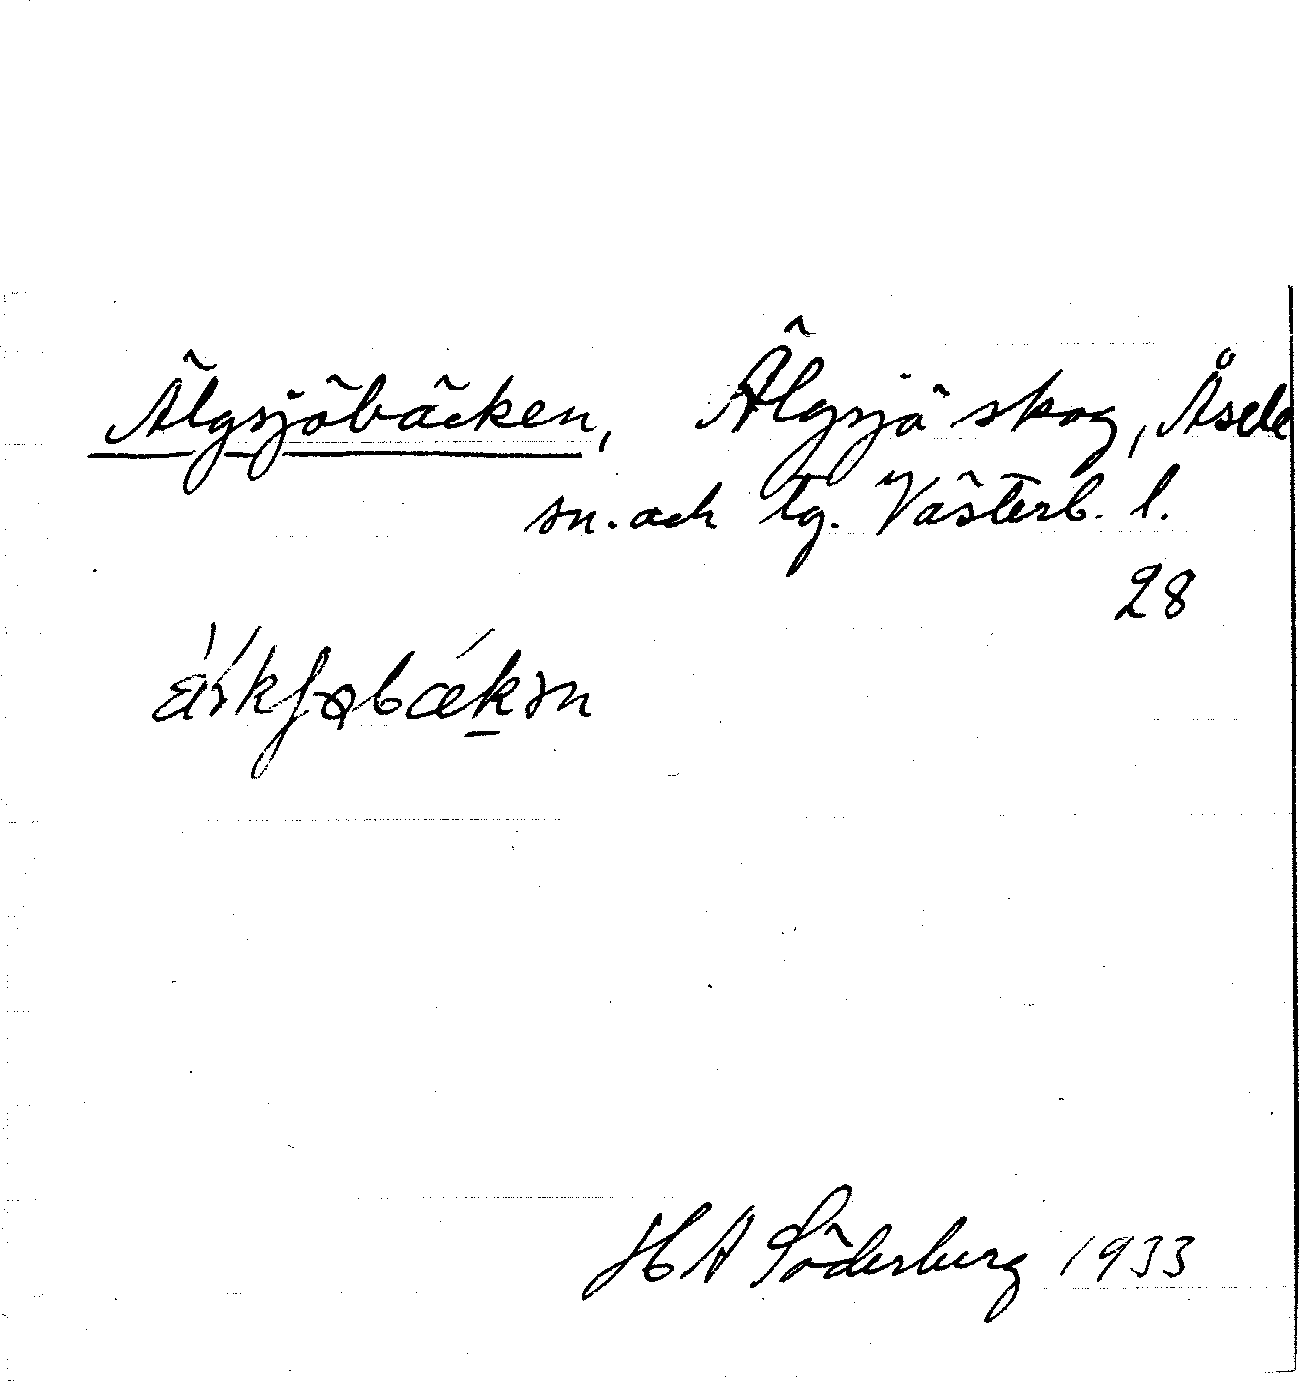 Älgsjöbäcken, Älgsjö skog, Åsele
sn. och tg. Västerb. l.
28
H A Söderberg 1933